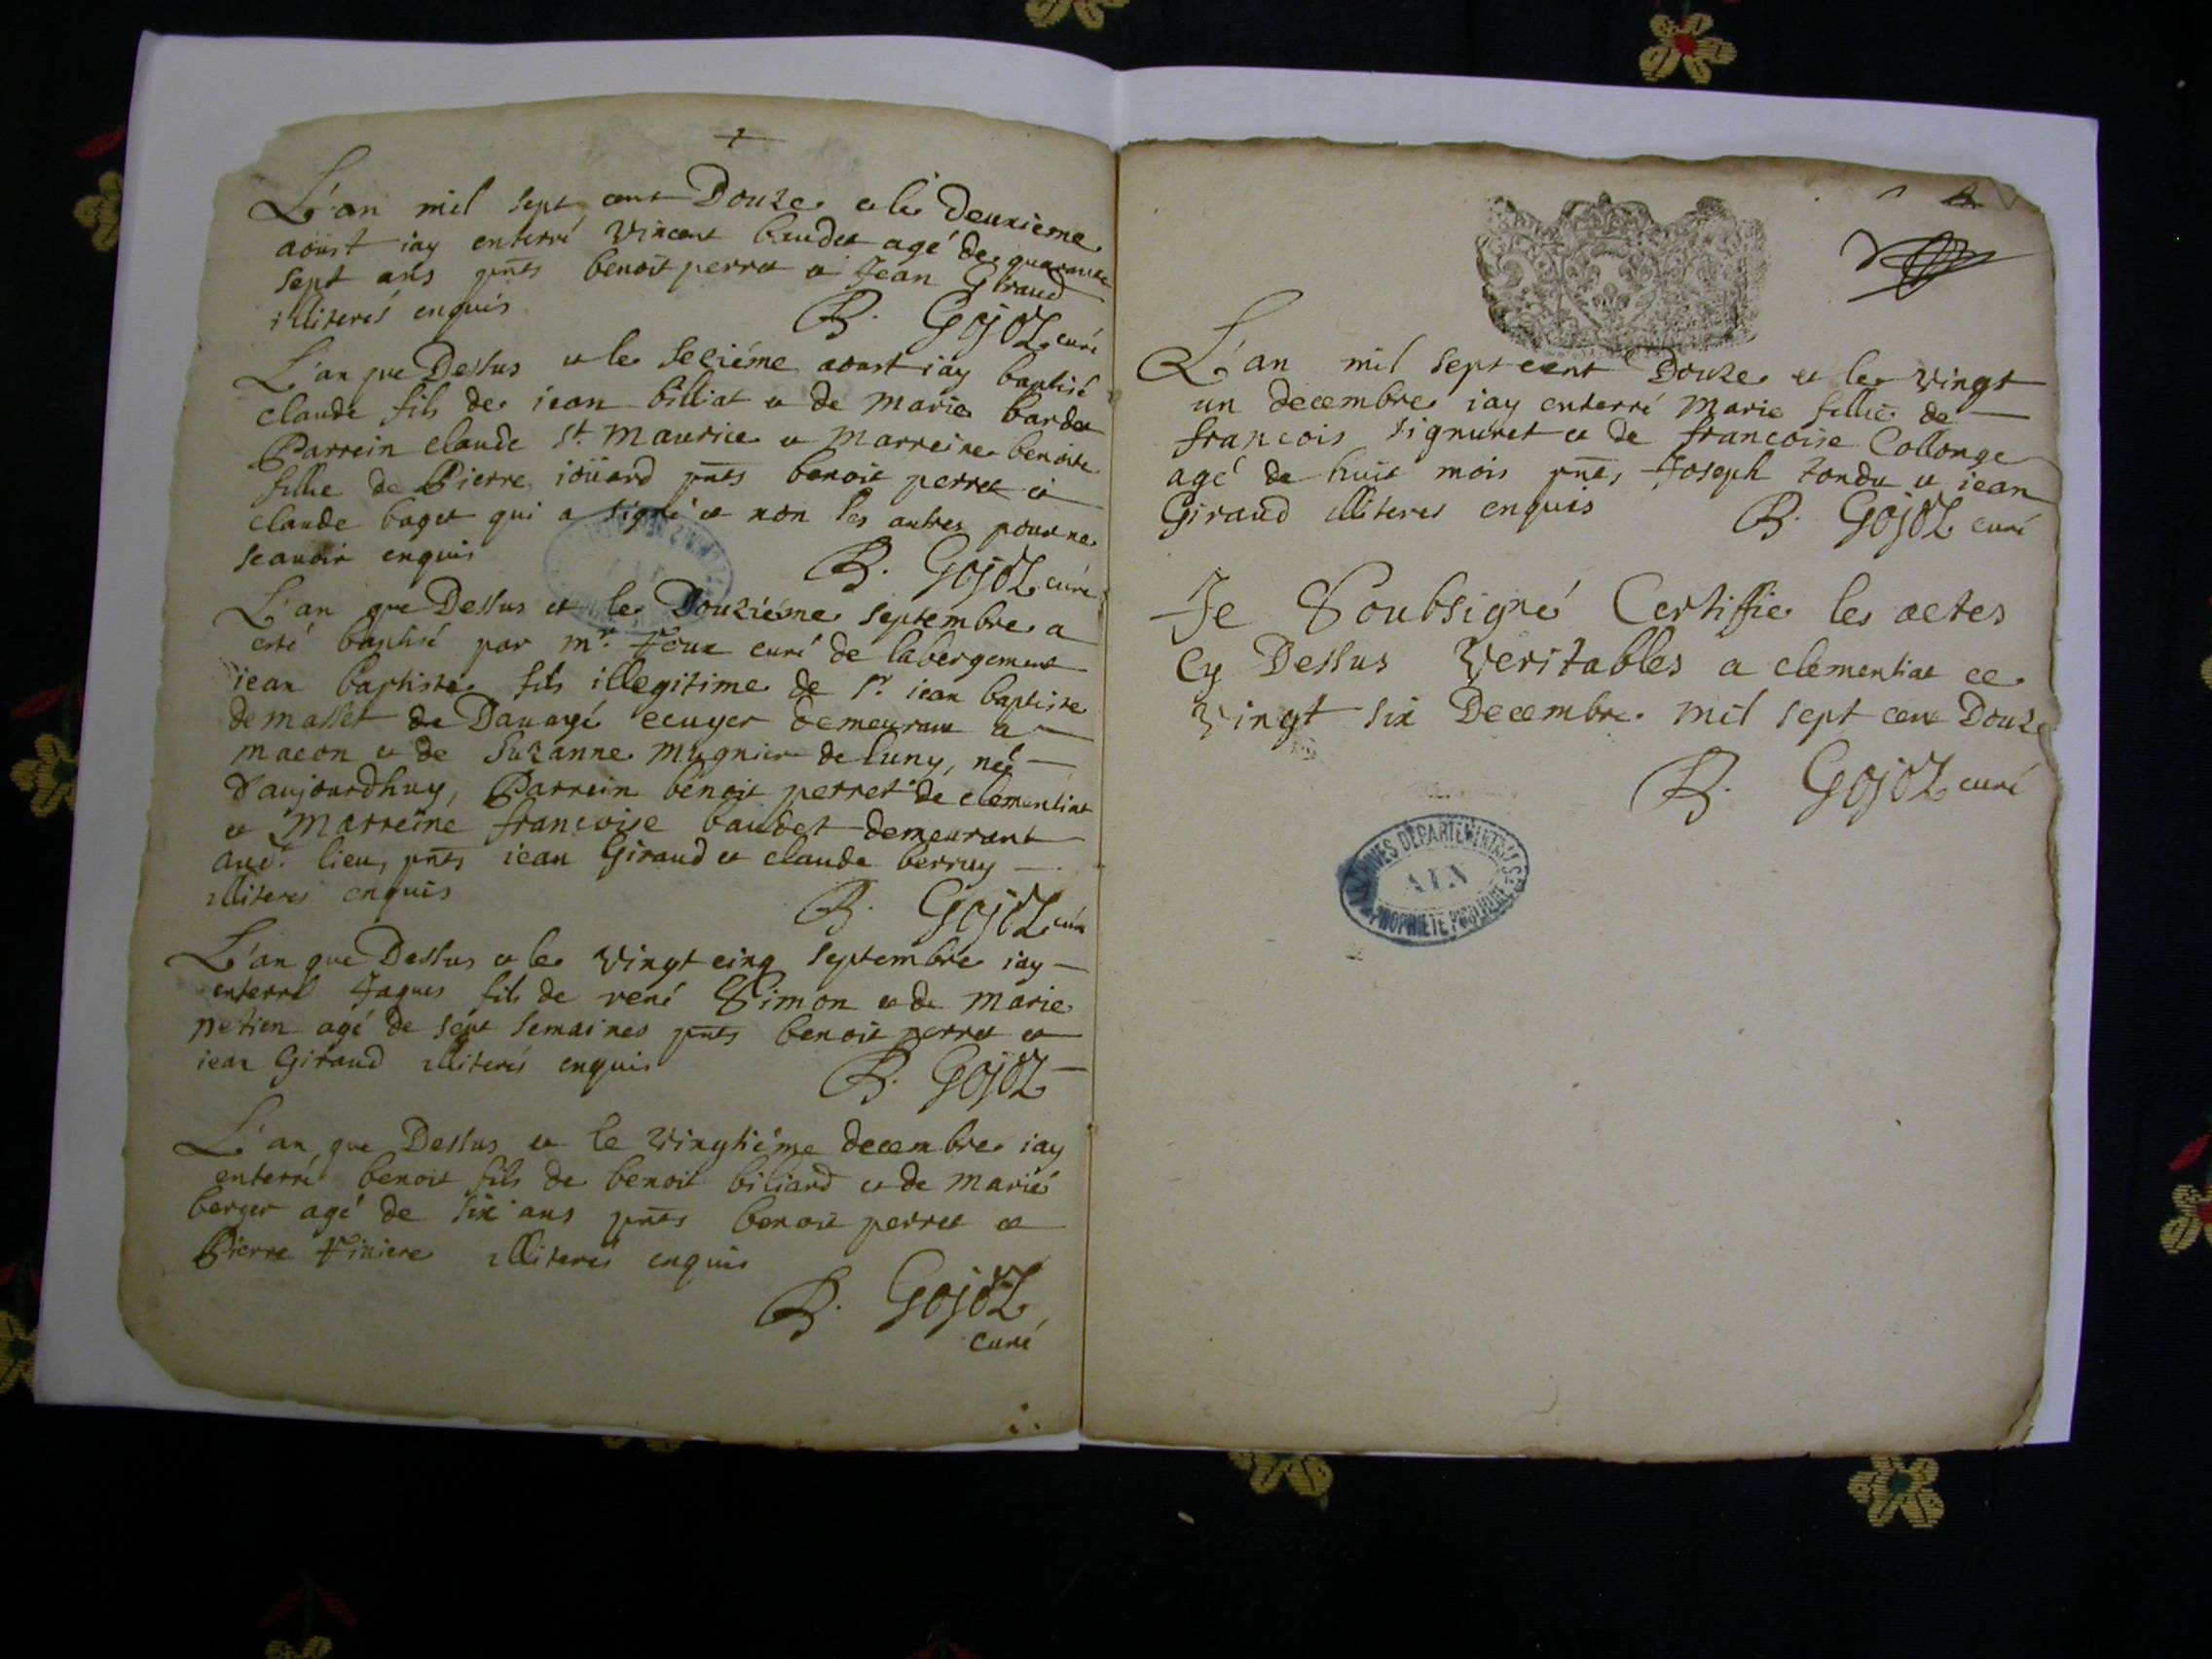 L'an mil sept cent Douze et le deuxième
aoust iay enterré Vincent baudet agé de quarante
sept ans pnts benoit perret et Jean Giraud
illiterés enquis B. Gojoz curé
L'an que Dessus et le seziéme aoust iay baptisé
claude fils de iean billiat et de marie bardet
Parrein claude st. maurice et marreine benoite
fillie de Pierre ioüard pnts benoit perret et
claude baget qui a signé et non les autres pour ne
scauoir enquis B. Gojoz curé
L'an que Dessus et le Douziéme septembre a
esté baptisé par mr. curé de labergement
iean baptiste fils illegitime de sr. iean baptiste
demasset de Dauayé ecuyer demeurant a
macon et de Suzanne mugnier de luny, né
d'aujourdhuy, Parrein benoit perret de clementiat
et marreine francoise baudet demeurant
aud. lieu, pnts iean Giraud et claude berruy
illiterés enquis B. Gojoz curé
L'an que Dessus et le vingt cinq septembre iay
enterré Jaques fils de rené Simon et de marie
petien agé de sept semaines pnts benoit perret et
iean Giraud illiterés enquis B. Gojoz
L'an que Dessus et le vingtiéme decembre iay
enterré benoit fils de benoit biliard et de marie
berger agé de six ans pnts benoit perret et
Pierre Tiniere illiterés enquis
B. Gojoz
curé
L'an mil sept cent Douze et le vingt
un decembre iay enterré marie fillie de
francois signuret et de francoise Collonge
agé de huit mois pnts, Joseph tondu et iean
Giraud illiteres enquis B. Gojoz curé
Je Soubsigné Certiffie les actes
Cy Dessus Veritables a clementiat ce
vingt six Decembre mil sept cent Douze
B. Gojoz curé
ARCHIVES DEPARTEMENTALES
AIN
PROPRIETE PUBLIQUE